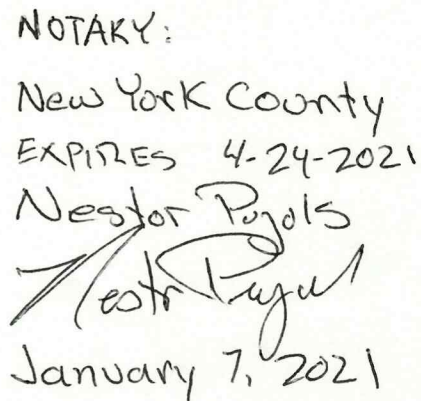 NOTARY:
New York County
EXPIRES 4-24-2021
Nestor Pujols
Nestor Pujol
January 7, 2021